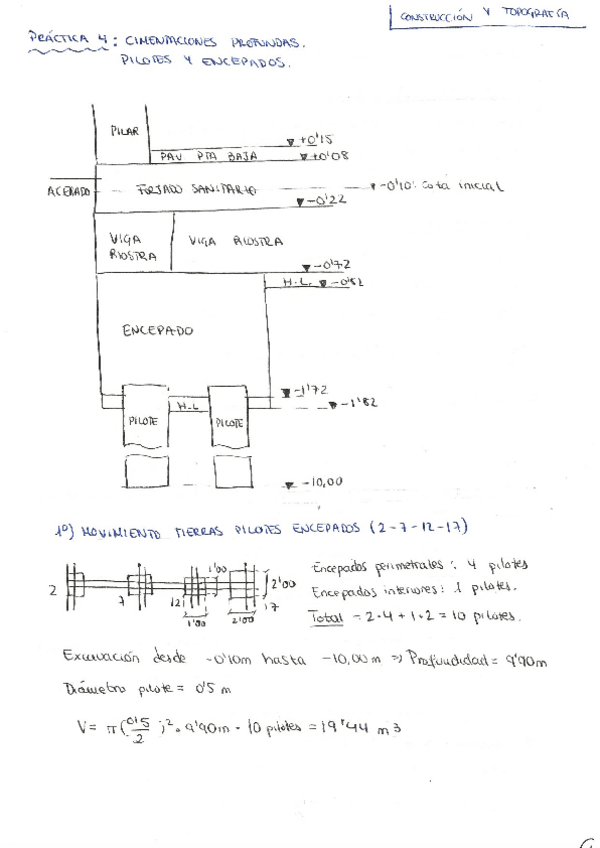 CONSTRUCCIÓN Y TOPOGRAFÍA
PRÁCTICA 4: CIMENTACIONES PROFUNDAS.
PILOTES Y ENCEPADOS.
PILAR
+0'15
PAV PTA BAJA
+0'08
ACERADO
FORJADO SANITARIO
-0'10: cota inicial
-0'22
VIGA RIOSTRA
VIGA RIOSTRA
-0'72
H.L.
-0'82
ENCEPADO
-1'72
H.L
-1'82
PILOTE
PILOTE
-10,00
1º) MOVIMIENTO TIERRAS PILOTES ENCEPADOS (2-7-12-17)
2
7
12
1'00
1'00
2'00
2'00
17
Encepados perimetrales: 4 pilotes
Encepados interiores: 1 pilotes.
Total = 2·4 + 1·2 = 10 pilotes.
Excavación desde -0'10m hasta -10,00 m => Profundidad = 9'90m
Diámetro pilote = 0'5 m
V = π(0'5/2)²·9'90m · 10 pilotes = 19'44 m3